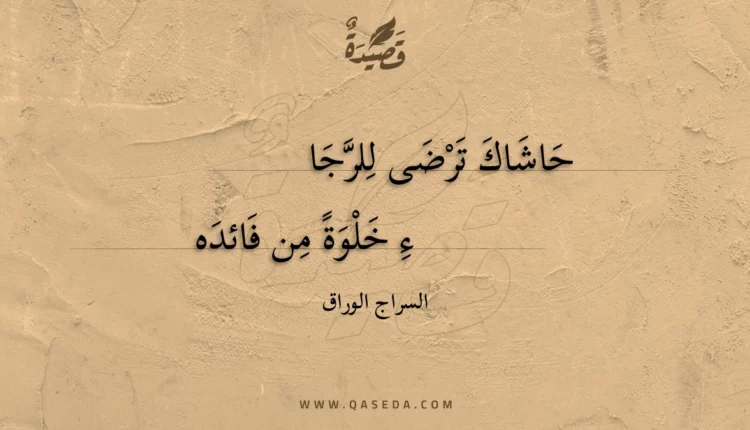 قَصِيدَةٌ
حَاشَاكَ تَرْضَى لِلرَّجَا
ءِ خَلْوَةً مِن فَائدَه
السراج الوراق
WWW.QASEDA.COM